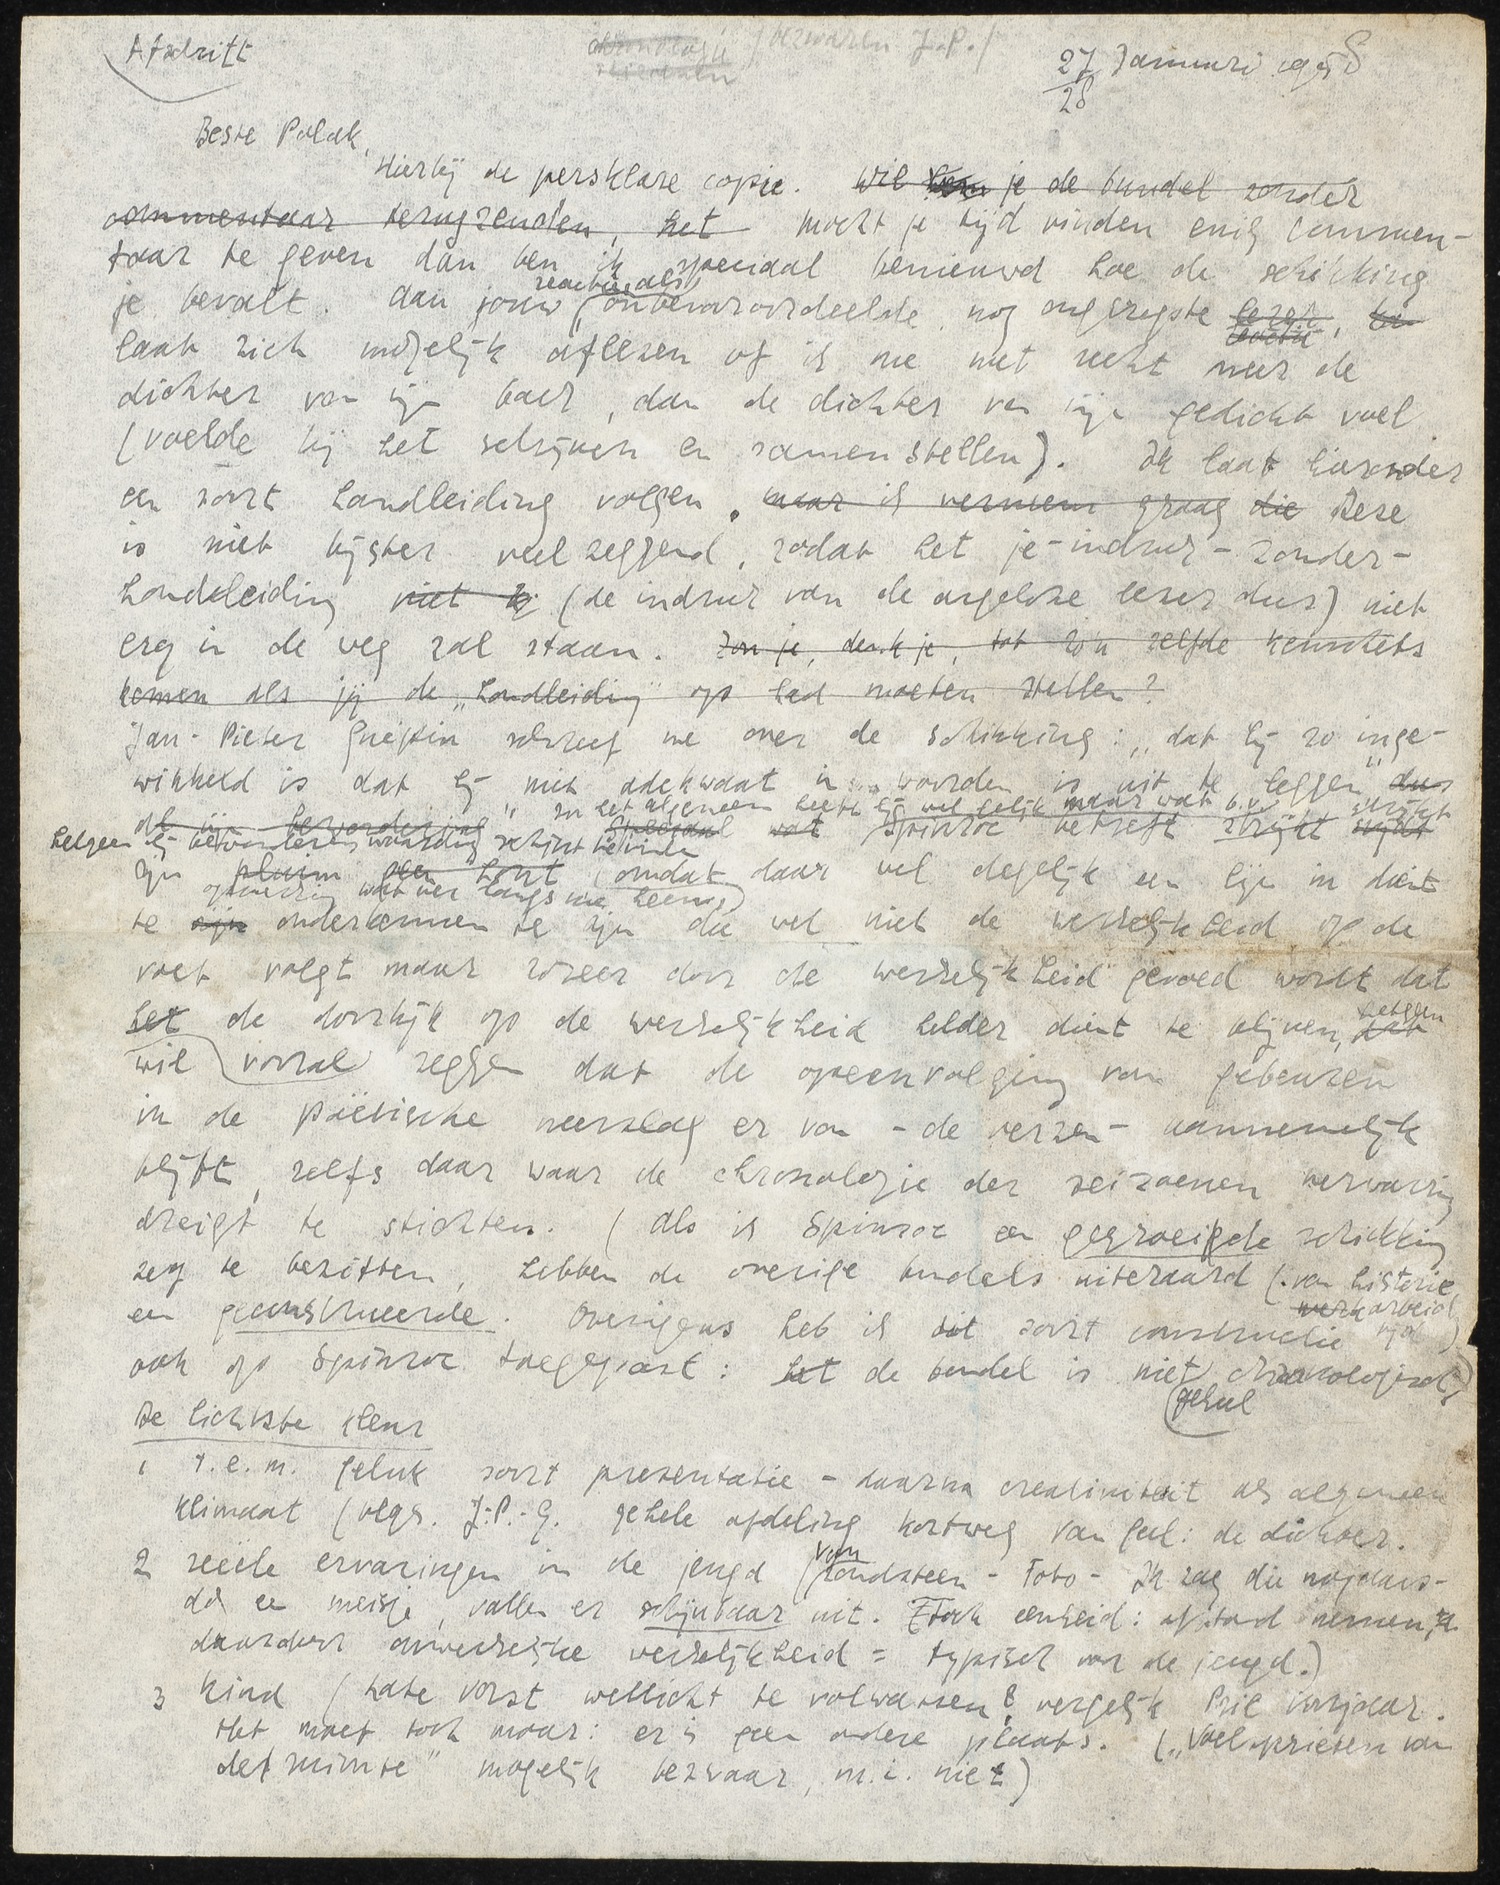 Afschrift
chronologie bezwaren J.-P./
27 Januari 1958
28
Beste Polak,
Hierbij de persklare copie. Wil je de bundel zonder
commentaar terugzenden, het mocht je tijd vinden enig commen-
taar te geven dan ben ik speciaal benieuwd hoe de schikking
reactie als
je bevalt. Aan jouw onbevooroordeelde, nog ongerepte lezer,
reactie
laat zich mogelijk aflezen of ik me met recht meer de
dichter van mijn boek, dan de dichter van mijn gedicht voel
(voelde bij het schrijven en samenstellen). Ik laat hieronder
een soort handleiding volgen. maar ik vermeen graag die Deze
is niet bijster veelzeggend, zodat het je-indruk-zonder-
handleiding niet bij (de indruk van de argeloze lezer dus) niet
erg in de weg zal staan. Zou je, denk je, tot zo'n zelfde
komen als jij de "handleiding" op had moeten stellen?
Jan-Pieter Guépin schreef me over de schikking: "dat hij zo inge-
wikkeld is dat hij niet adekwaat in woorden is uit te leggen" dus
In het algemeen heeft hij wel gelijk maar wat b.v. strijkt
speciaal wat Spinroc betreft strijkt
hetgeen hij bewonderenswaardig schijnt te vinden
zijn pluim een hout (omdat daar wel degelijk een lijn in dient
opmerking wat langs me heen)
te zijn onderkennen te zijn die wel niet de werkelijkheid op de
voet volgt maar zozeer door de werkelijkheid gevoed wordt dat
het de doorkijk op de werkelijkheid helder dient te blijven, hetgeen
dat
wil vooral zeggen dat de opeenvolging van gebeuren
in de poëtische neerslag er van - de verzen - aannemelijk
blijft, zelfs daar waar de chronologie der seizoenen verwarring
dreigt te stichten. (Als ik Spinroc een gegroeide schikking
zeg te bezitten, hebben de overige bundels uiteraard (van historie
een geconstrueerde. Overigens heb ik dit soort constructie
ook op Spinroc toegepast: het de bundel is niet chronologisch)
geheel
De lichtste kleur
1 t.e.m. geluk soort presentatie - daarna creativiteit als algemeen
klimaat (volgs. J.-P.-G. gehele afdeling kortweg van geel: de dichter.
van
2 reeële ervaringen in de jeugd (zandsteen - Foto - Ik zag die najaars-
dag een meisje, vallen er schijnbaar uit. Toch eenheid: afstand nemen,
daardoor onwerkelijke werkelijkheid = typisch voor de jeugd.)
3 kind (late vorst wellicht te volwassen? vergelijk Pril voorjaar.
Het moet toch maar: er is geen andere plaats. ("Voelsprieten van
der ruimte" mogelijk bezwaar, m.i. niet)